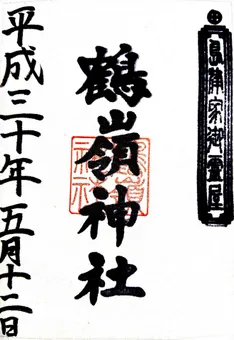 島津家御霊屋
鶴嶺神社
平成三十年五月十二日